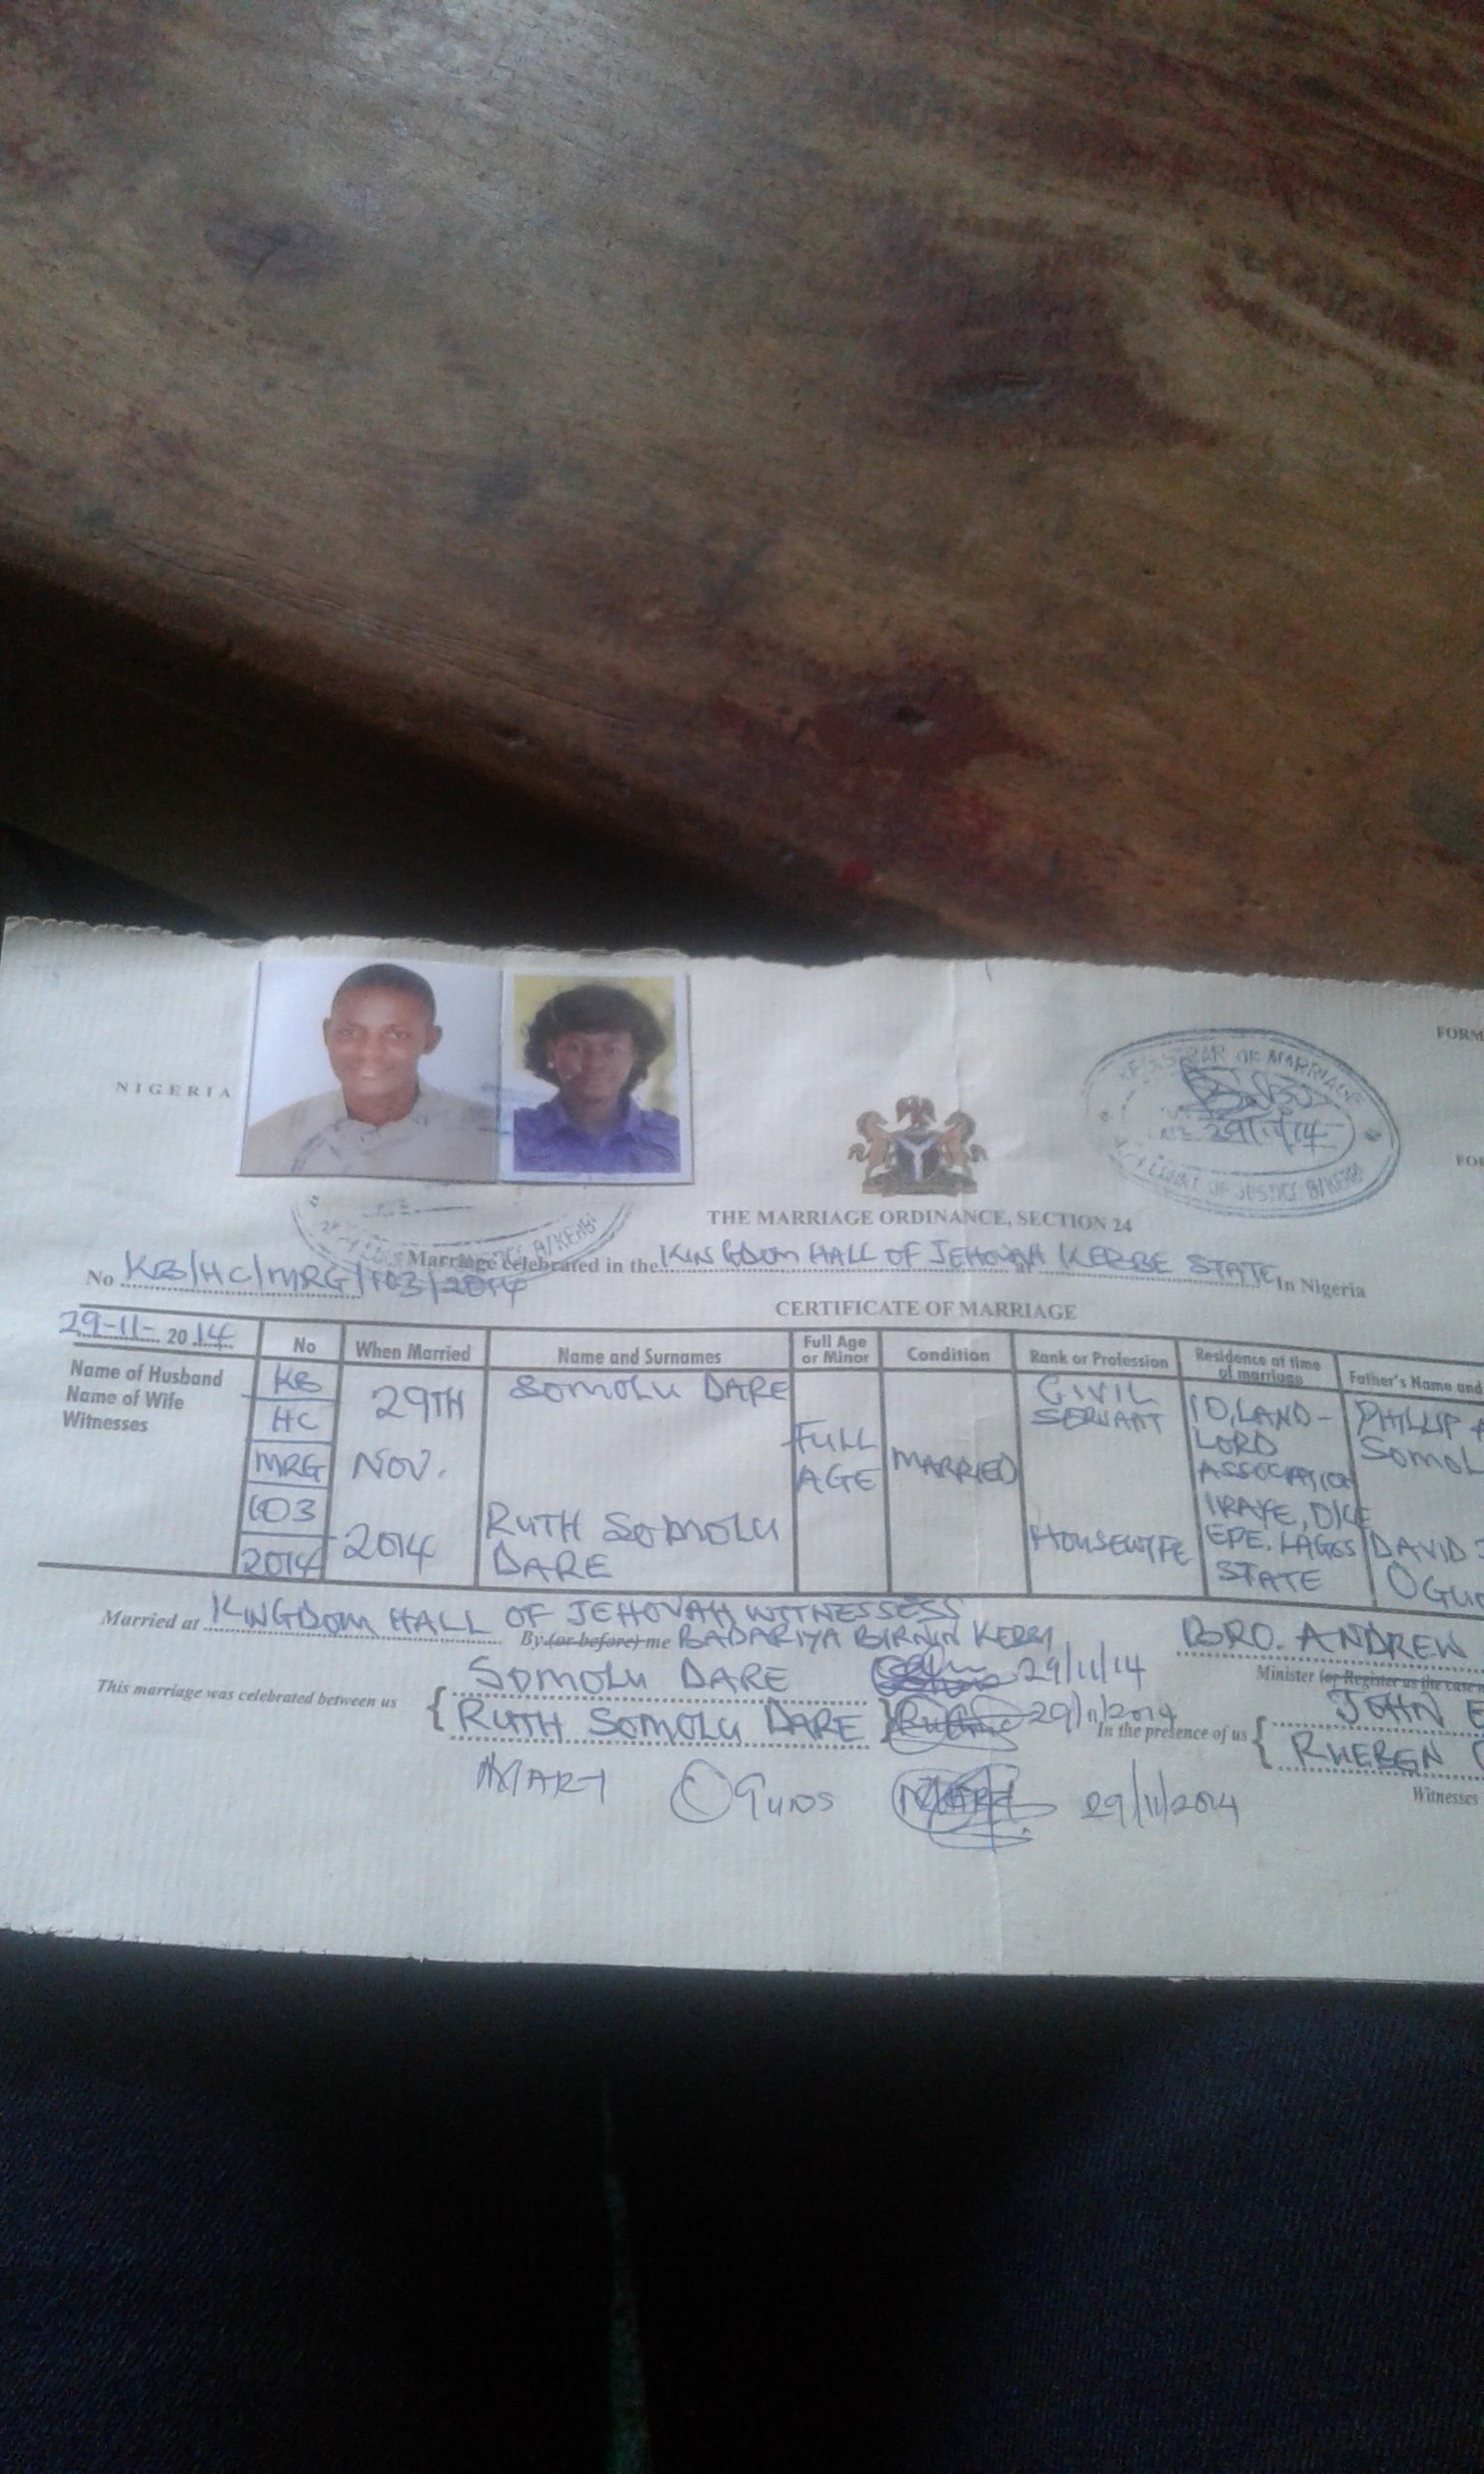 FORM
NIGERIA
REGISTRAR OF MARRIAGE
29/11/14
COURT OF JUSTICE B/KEBBI
THE MARRIAGE ORDINANCE, SECTION 24
B/KEBBI
No KB/HC/MRG/103/2014 Marriage celebrated in the KINGDOM HALL OF JEHOVAH at KEBBE STATE In Nigeria
CERTIFICATE OF MARRIAGE
29-11- 20 14
No When Married Name and Surnames Full Age or Minor Condition Rank or Profession Residence at time of marriage Father's Name and
Name of Husband
Name of Wife
Witnesses
KB
HC
MRG
103
2014
29TH
NOV.
2014
SOMOLU DARE
RUTH SOMOLU
DARE
FULL
AGE
MARRIED
CIVIL
SERVANT
HOUSEWIFE
10, LAND-
LORD
ASSOCIATION
EPE. LAGOS
STATE
PHILLIP
SOMOL
DAVID
OGU
Married at KINGDOM HALL OF JEHOVAH WITNESSESS
By (or before) me BADARIYA BIRNIN KEBBI
BRO. ANDREW
Minister (or Register as the case
This marriage was celebrated between us { SOMOLU DARE 29/11/14
RUTH SOMOLU DARE } 29/11/2014
In the presence of us { JOHN E
RUEBEN
Witnesses
29/11/2014